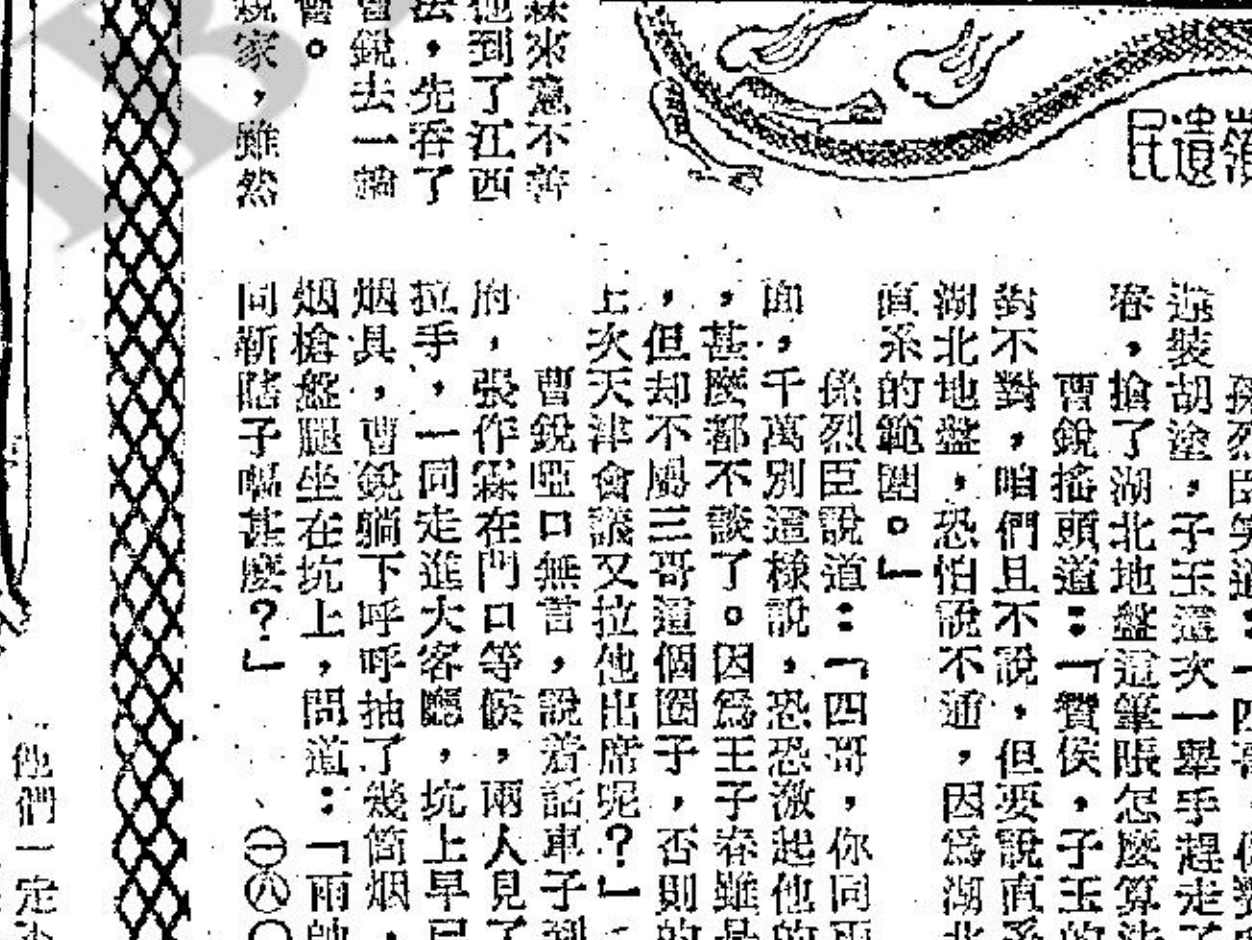 嶺遺民
孫烈臣笑道：「四哥，你
造裝胡塗，子玉這次一舉手趕走了
春，搶了湖北地盤這筆賬怎麼算法
曹銳搖頭道：「贊侯，子玉的
對不對，咱們且不說，但要說直系
湖北地盤，恐怕說不通，因爲湖北
直系的範圍。」
孫烈臣說道：「四哥，你同雨
面，千萬別這樣說，恐恐激起他的
，甚麼都不談了。因爲王子春雖是
，但却不屬三哥這個圈子，否則的
上次天津會議又拉他出席呢？」
曹銳啞口無言，說着話車子到
府，張作霖在門口等候，兩人見了
拉手，一同走進大客廳，坑上早已
烟具，曹銳躺下呼呼抽了幾筒烟，
烟槍盤腿坐在坑上，問道：「雨帥
同新瞎子喝甚麼？」 ㊀㊇〇
霖來意不善
他到了江西
法，先吞了
曹銳去一趟
曹。
親家，雖然
他們一定